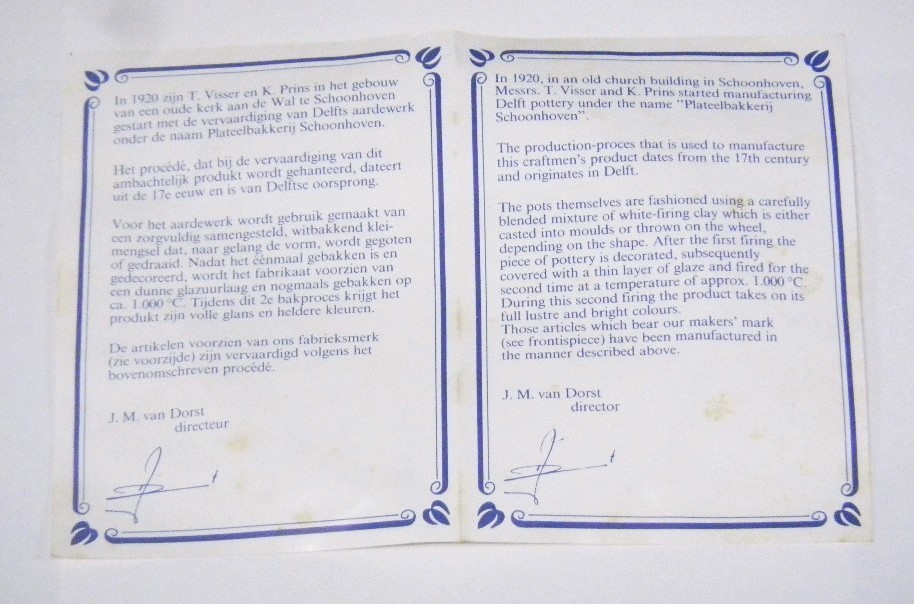 In 1920 zijn T. Visser en K. Prins in het gebouw
van een oude kerk aan de Wal te Schoonhoven
gestart met de vervaardiging van Delfts aardewerk
onder de naam Plateelbakkerij Schoonhoven.
Het procédé, dat bij de vervaardiging van dit
ambachtelijk produkt wordt gehanteerd, dateert
uit de 17e eeuw en is van Delftse oorsprong.
Voor het aardewerk wordt gebruik gemaakt van
een zorgvuldig samengesteld, witbakkend klei-
mengsel dat, naar gelang de vorm, wordt gegoten
of gedraaid. Nadat het éénmaal gebakken is en
gedecoreerd, wordt het fabrikaat voorzien van
een dunne glazuurlaag en nogmaals gebakken op
ca. 1.000 °C. Tijdens dit 2e bakproces krijgt het
produkt zijn volle glans en heldere kleuren.
De artikelen voorzien van ons fabrieksmerk
(zie voorzijde) zijn vervaardigd volgens het
bovenomschreven procédé.
J. M. van Dorst
directeur
In 1920, in an old church building in Schoonhoven,
Messrs. T. Visser and K. Prins started manufacturing
Delft pottery under the name "Plateelbakkerij
Schoonhoven".
The production-proces that is used to manufacture
this craftmen's product dates from the 17th century
and originates in Delft.
The pots themselves are fashioned using a carefully
blended mixture of white-firing clay which is either
casted into moulds or thrown on the wheel,
depending on the shape. After the first firing the
piece of pottery is decorated, subsequently
covered with a thin layer of glaze and fired for the
second time at a temperature of approx. 1.000 °C.
During this second firing the product takes on its
full lustre and bright colours.
Those articles which bear our makers' mark
(see frontispiece) have been manufactured in
the manner described above.
J. M. van Dorst
director